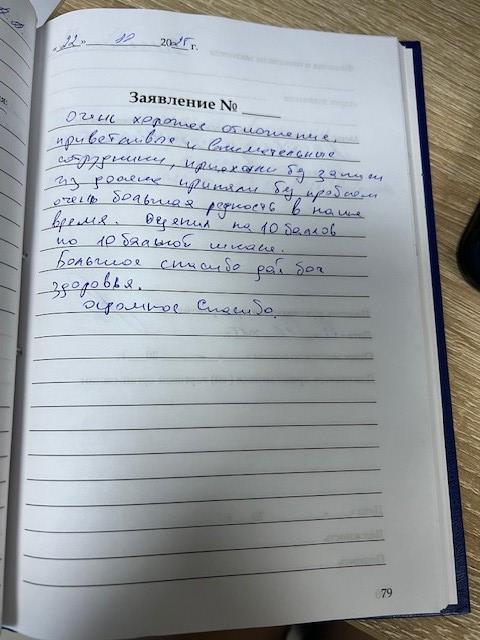 «22» 12 2025 г.
Заявление № ____
Очень хорошее отношение,
приветливые и внимательные
сотрудники, приехали без записи
из далека приняли без проблем
очень большая редкость в наше
время. Оценил на 10 баллов
по 10 бальной шкале.
Большое спасибо дай бог
здоровья.
Огромное Спасибо.
79